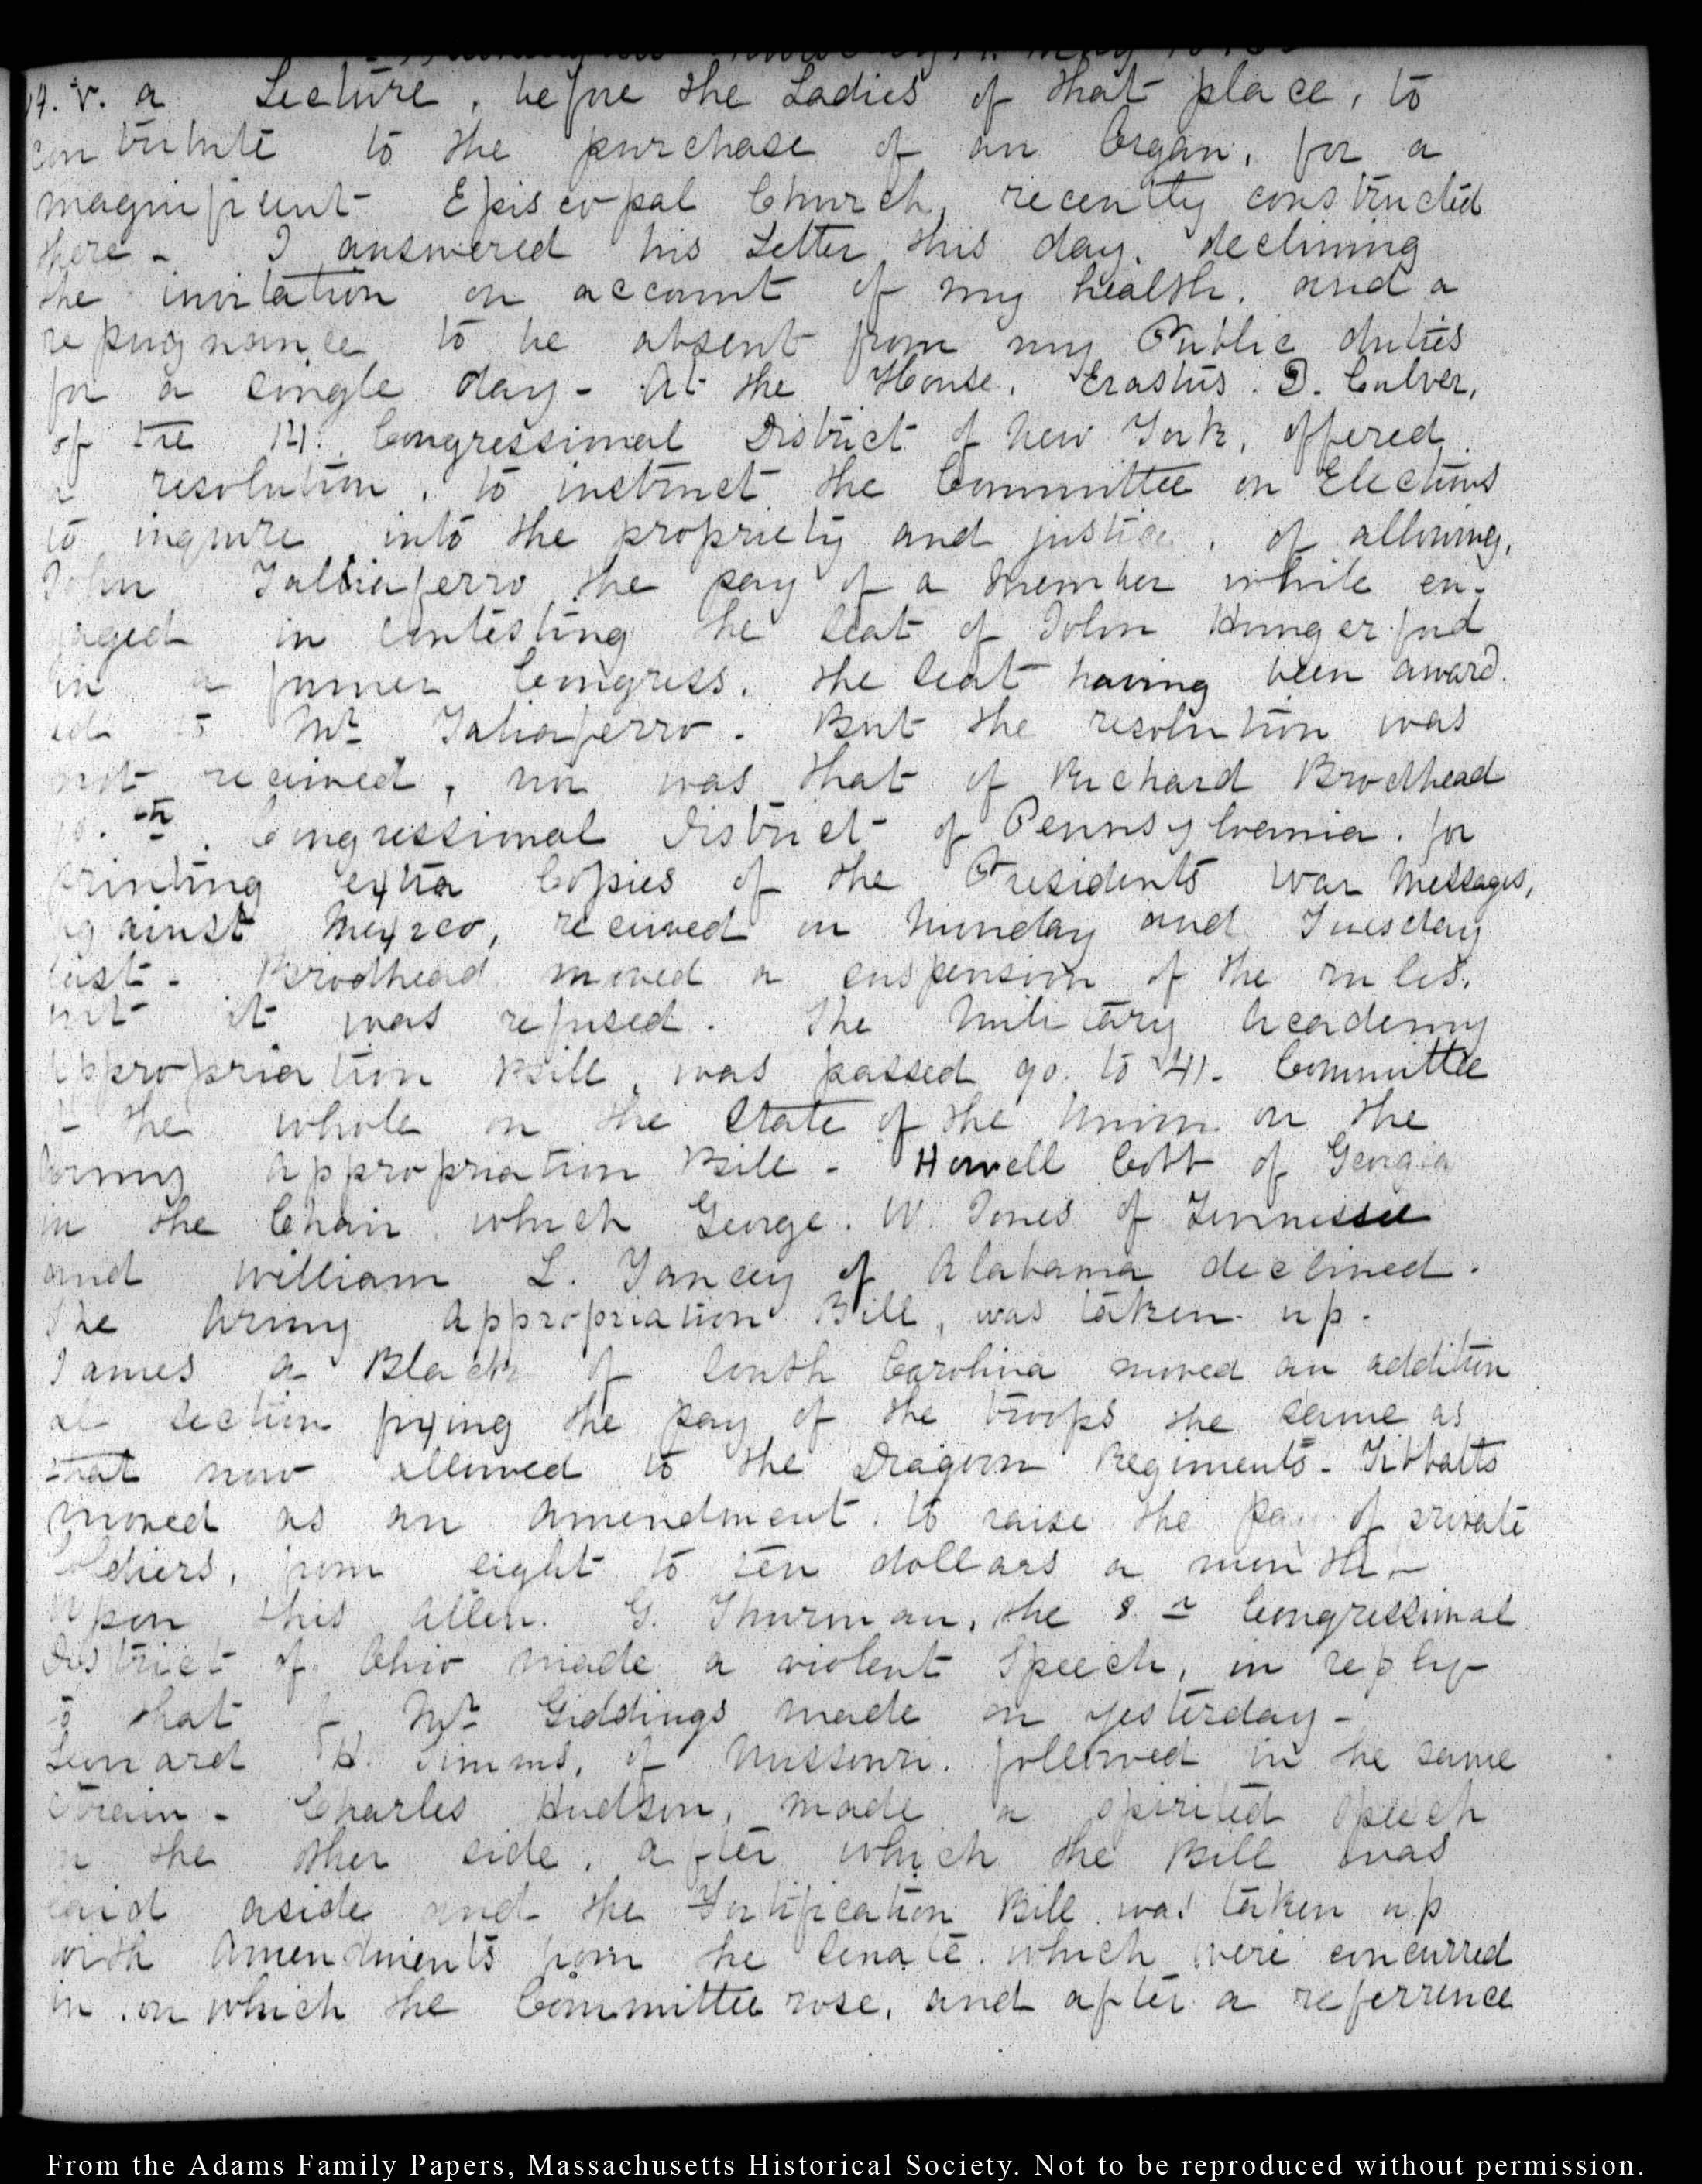 14. V. a Lecture, before the Ladies of that place, to
contribute to the purchase of an Organ, for a
magnificent Episcopal Church, recently constructed
there - I answered his Letter this day, declining
the invitation on account of my health, and a
repugnance to be absent from my Public duties
for a single day - At the House, Erastus. D. Culver,
of the 14. Congressional District of New York, offered
a resolution, to instruct the Committee on Elections
to inquire into the propriety and justice, of allowing,
John Taliaferro the pay of a Member while en-
gaged in contesting the Seat of John Hungerford
in a former Congress, the Seat having been award-
ed to Mr Taliaferro. But the resolution was
not received, nor was that of Richard Brodhead
10.th Congressional District of Pennsylvania, for
printing extra Copies of the Presidents War Messages,
against Mexico, received on Monday and Tuesday
last - Brodhead moved a suspension of the rules,
but it was refused. The Military Academy
Appropriation Bill, was passed 90. to 41. Committee
of the whole on the State of the Union on the
Army Appropriation Bill - Howell Cobb of Georgia
in the Chair which George. W. Jones of Tennessee
and William L. Yancey of Alabama declined.
The Army Appropriation Bill, was taken up.
James A Black of South Carolina moved an addition
al section fixing the pay of the troops the same as
that now allowed to the Dragoon Regiments - Tibbatts
moved as an Amendment, to raise the pay of private
Soldiers, from eight to ten dollars a month. -
Upon this Allen. G. Thurman, the 8.th Congressional
District of Ohio made a violent Speech, in reply
to that of Mr Giddings made on yesterday -
Leonard H. Simms, of Missouri, followed in the same
Strain - Charles Hudson, made a spirited Speech
on the other side, after which the Bill was
laid aside and the Fortification Bill was taken up
with Amendments from the Senate, which were concurred
in, on which the Committee rose, and after a referrence
From the Adams Family Papers, Massachusetts Historical Society. Not to be reproduced without permission.